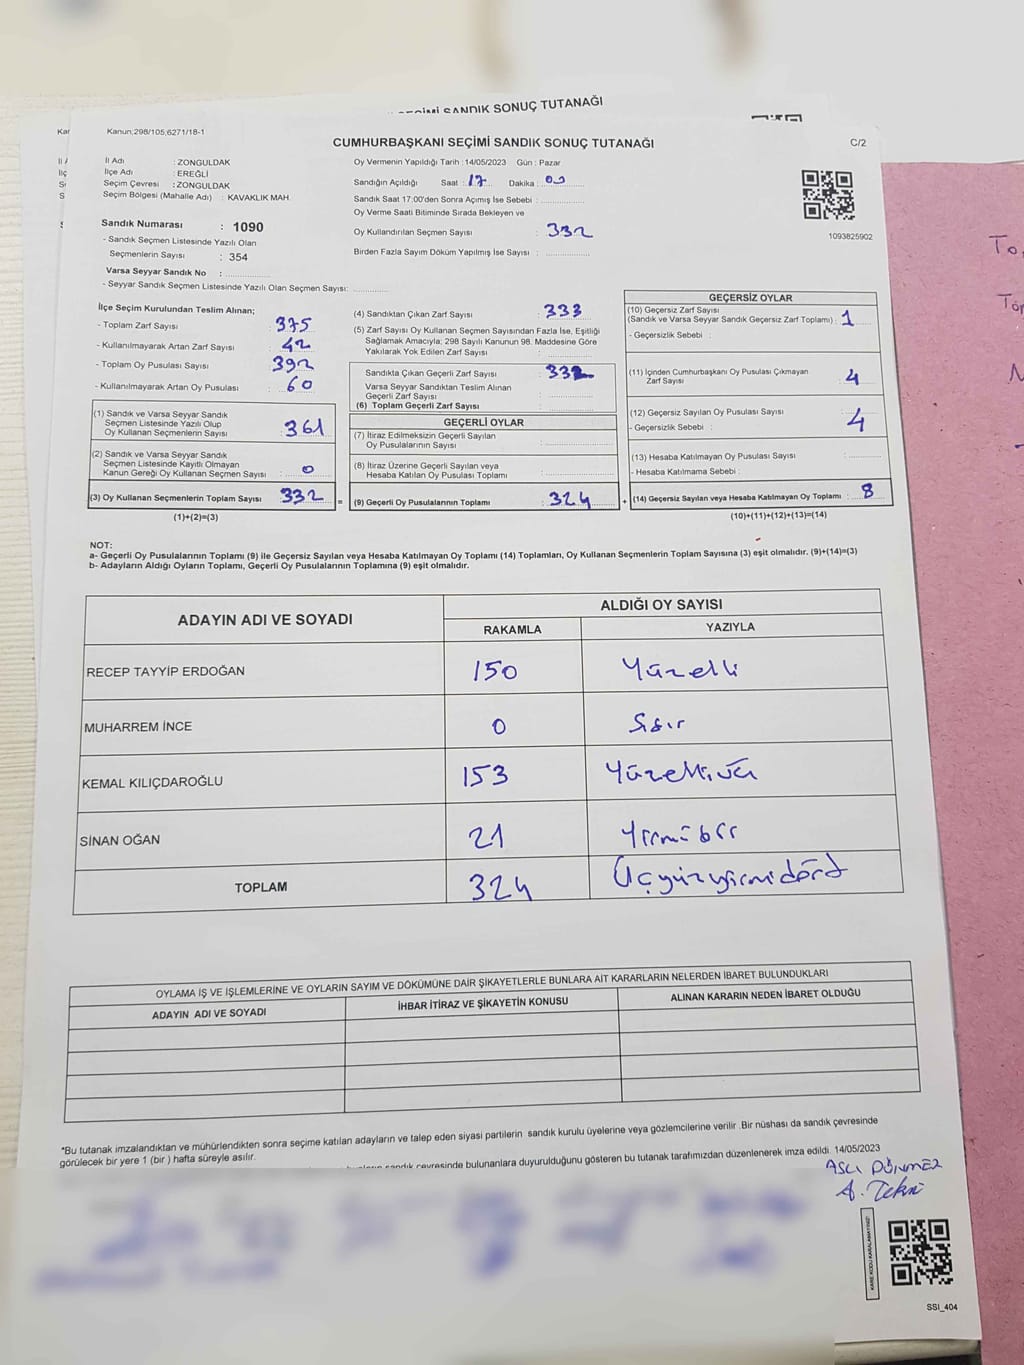 SEÇİMİ SANDIK SONUÇ TUTANAĞI
Kanun;298/105;6271/18-1
CUMHURBAŞKANI SEÇİMİ SANDIK SONUÇ TUTANAĞI
C/2
İl Adı : ZONGULDAK
İlçe Adı : EREĞLİ
Seçim Çevresi : ZONGULDAK
Seçim Bölgesi (Mahalle Adı) : KAVAKLIK MAH.
Sandık Numarası : 1090
- Sandık Seçmen Listesinde Yazılı Olan
Seçmenlerin Sayısı : 354
Varsa Seyyar Sandık No :
- Seyyar Sandık Seçmen Listesinde Yazılı Olan Seçmen Sayısı:
Oy Vermenin Yapıldığı Tarih :14/05/2023 Gün : Pazar
Sandığın Açıldığı Saat : 17 Dakika : 00
Sandık Saat 17:00'den Sonra Açımış İse Sebebi :
Oy Verme Saati Bitiminde Sırada Bekleyen ve
Oy Kullandırılan Seçmen Sayısı : 332
Birden Fazla Sayım Döküm Yapılmış İse Sayısı :
1093825902
İlçe Seçim Kurulundan Teslim Alınan;
- Toplam Zarf Sayısı : 375
- Kullanılmayarak Artan Zarf Sayısı : 42
- Toplam Oy Pusulası Sayısı : 392
- Kullanılmayarak Artan Oy Pusulası : 60
(1) Sandık ve Varsa Seyyar Sandık
Seçmen Listesinde Yazılı Olup
Oy Kullanan Seçmenlerin Sayısı : 361
(2) Sandık ve Varsa Seyyar Sandık
Seçmen Listesinde Kayıtlı Olmayan
Kanun Gereği Oy Kullanan Seçmen Sayısı : 0
(3) Oy Kullanan Seçmenlerin Toplam Sayısı : 332
(1)+(2)=(3)
(4) Sandıktan Çıkan Zarf Sayısı : 333
(5) Zarf Sayısı Oy Kullanan Seçmen Sayısından Fazla İse, Eşitliği
Sağlamak Amacıyla; 298 Sayılı Kanunun 98. Maddesine Göre
Yakılarak Yok Edilen Zarf Sayısı :
Sandıkta Çıkan Geçerli Zarf Sayısı : 332
Varsa Seyyar Sandıktan Teslim Alınan
Geçerli Zarf Sayısı :
(6) Toplam Geçerli Zarf Sayısı :
GEÇERLİ OYLAR
(7) İtiraz Edilmeksizin Geçerli Sayılan
Oy Pusulalarının Sayısı :
(8) İtiraz Üzerine Geçerli Sayılan veya
Hesaba Katılan Oy Pusulası Toplamı :
= (9) Geçerli Oy Pusulalarının Toplamı : 324
GEÇERSİZ OYLAR
(10) Geçersiz Zarf Sayısı
(Sandık ve Varsa Seyyar Sandık Geçersiz Zarf Toplamı) : 1
- Geçersizlik Sebebi :
(11) İçinden Cumhurbaşkanı Oy Pusulası Çıkmayan
Zarf Sayısı : 4
(12) Geçersiz Sayılan Oy Pusulası Sayısı : 4
- Geçersizlik Sebebi :
(13) Hesaba Katılmayan Oy Pusulası Sayısı :
- Hesaba Katılmama Sebebi :
+ (14) Geçersiz Sayılan veya Hesaba Katılmayan Oy Toplamı : 8
(10)+(11)+(12)+(13)=(14)
NOT:
a- Geçerli Oy Pusulalarının Toplamı (9) ile Geçersiz Sayılan veya Hesaba Katılmayan Oy Toplamı (14) Toplamları, Oy Kullanan Seçmenlerin Toplam Sayısına (3) eşit olmalıdır. (9)+(14)=(3)
b- Adayların Aldığı Oyların Toplamı, Geçerli Oy Pusulalarının Toplamına (9) eşit olmalıdır.
ADAYIN ADI VE SOYADI
ALDIĞI OY SAYISI
RAKAMLA YAZIYLA
RECEP TAYYİP ERDOĞAN 150 Yüzelli
MUHARREM İNCE 0 Sıfır
KEMAL KILIÇDAROĞLU 153 Yüzelliüç
SİNAN OĞAN 21 Yirmibir
TOPLAM 324 Üçyüzyirmidört
OYLAMA İŞ VE İŞLEMLERİNE VE OYLARIN SAYIM VE DÖKÜMÜNE DAİR ŞİKAYETLERLE BUNLARA AİT KARARLARIN NELERDEN İBARET BULUNDUKLARI
ADAYIN ADI VE SOYADI
İHBAR İTİRAZ VE ŞİKAYETİN KONUSU
ALINAN KARARIN NEDEN İBARET OLDUĞU
*Bu tutanak imzalandıktan ve mühürlendikten sonra seçime katılan adayların ve talep eden siyasi partilerin sandık kurulu üyelerine veya gözlemcilerine verilir .Bir nüshası da sandık çevresinde
görülecek bir yere 1 (bir ) hafta süreyle asılır.
sandık çevresinde bulunanlara duyurulduğunu gösteren bu tutanak tarafımızdan düzenlenerek imza edildi. 14/05/2023
ASLI DÖNMEZ
KARE KODU KARALAMAYINIZ!
SSI_404